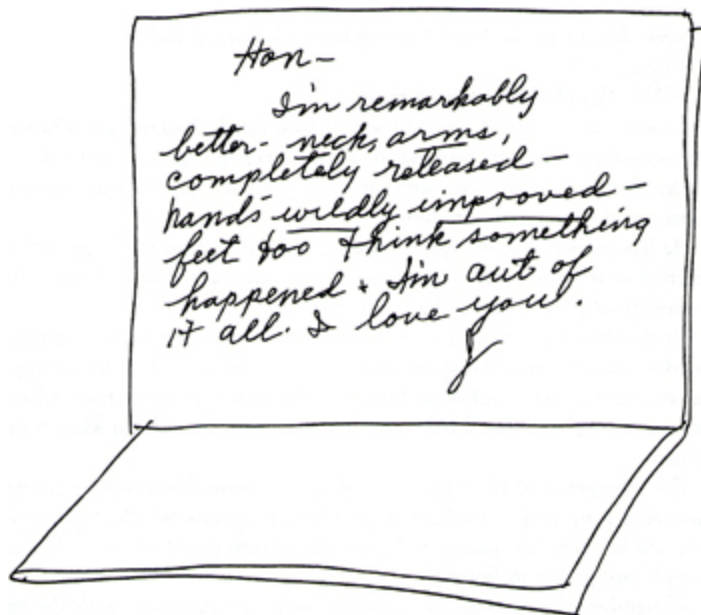 Hon-
I'm remarkably
better- neck, arms,
completely released-
hands wildly improved-
feet too I think something
happened & I'm out of
it all. I love you.
J